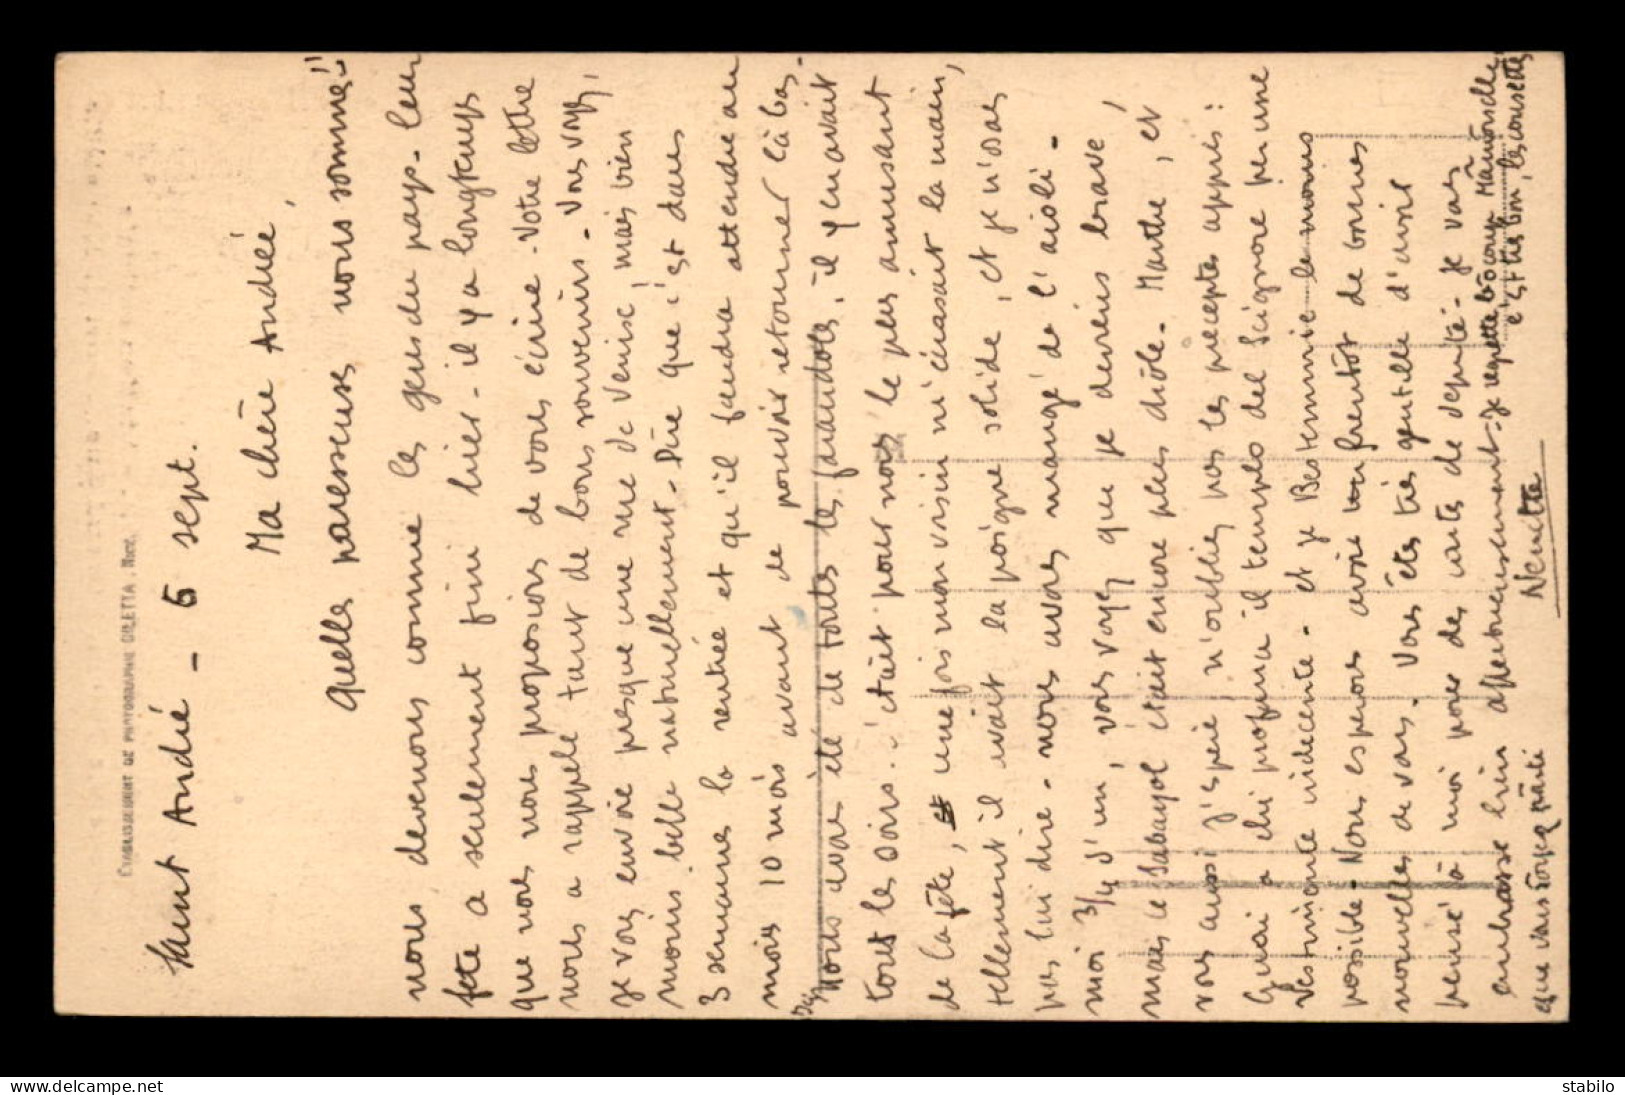 ETABLISSEMENT DE PHOTOGRAPHIE GILETTA, NICE.
Saint André - 5 sept.
Ma chère Andrée,
Quelles paresseuses nous sommes!!
nous devenons comme les gens du pays - leur
fete a seulement fini hier - il y a longtemps
que nous nous proposions de vous écrire - Votre lettre
nous a rappelé tant de bons souvenirs - Vous voyez,
je vous envoie presque une rue de Venise, mais bien
moins belle naturellement - Dire que c'est dans
3 semaines la rentrée et qu'il faudra attendre au
mois 10 mois avant de pouvoir retourner là bas -
Nous avons été de toutes les farandoles, il y en avait
tout les soirs. c'était pour nous le plus amusant
de la fête, une fois mon voisin m'écrasait la main,
tellement il avait la poigne solide, et je n'osais
pas lui dire - nous avons mangé de l'aioli -
moi 3/4 d'un, vous voyez que je deviens brave,
mais le Sabayol était encore plus drôle - Marthe, et
vous aussi j'espère, n'oubliez pas les preceptes appris:
Guai a chi profana il tempio del Seignore per une
Vestimente indecente - et je Bestemmie le moins
possible - Nous esperons avoir bientôt de bonnes
nouvelles de vous. Vous êtes très gentille d'avoir
pensé à moi pour des cartes de député - Je vous
embrasse bien affectueusement - je regrette bôcoup Mamoiselle
que vous soyez parti e c'est très bon, les
Nenette